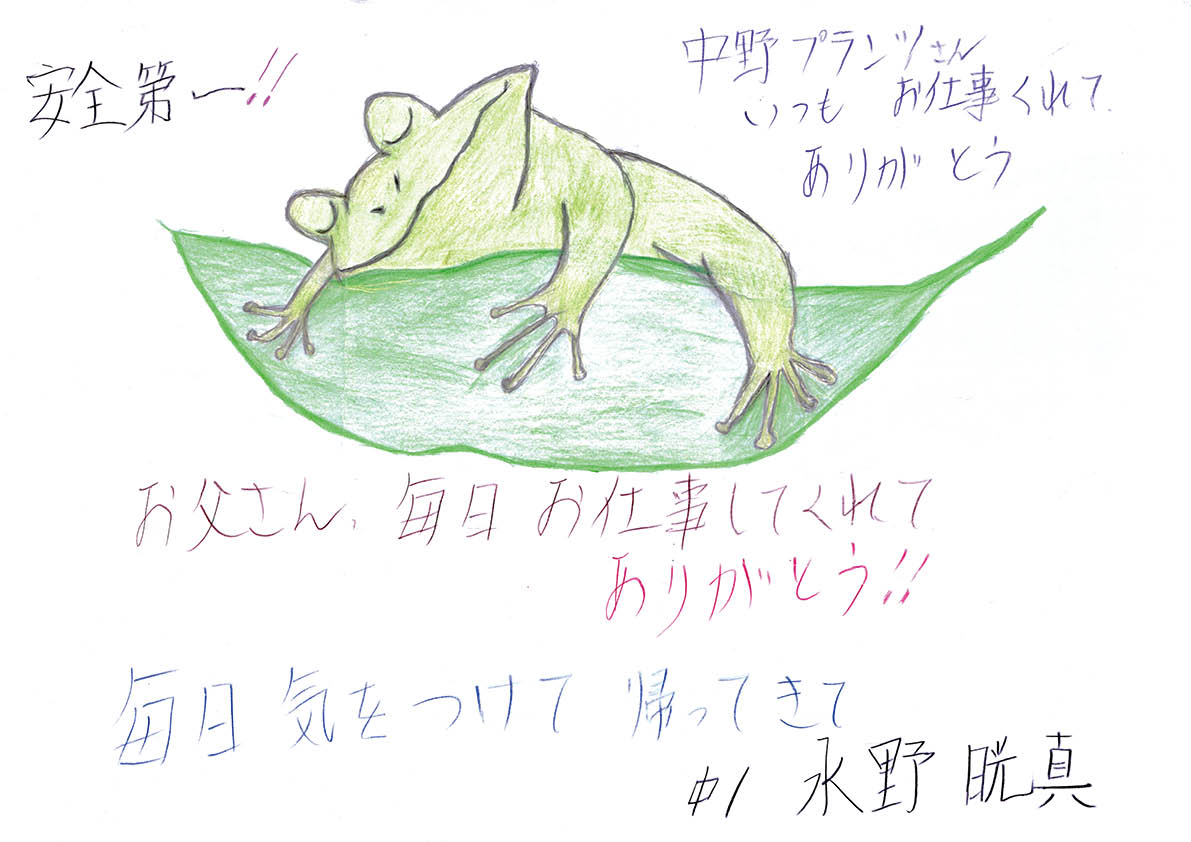 安全第一!!
中野プランツさん
いつも お仕事くれて
ありがとう
お父さん、毎日お仕事してくれて
ありがとう!!
毎日 気をつけて 帰ってきて
中1 永野 晄真